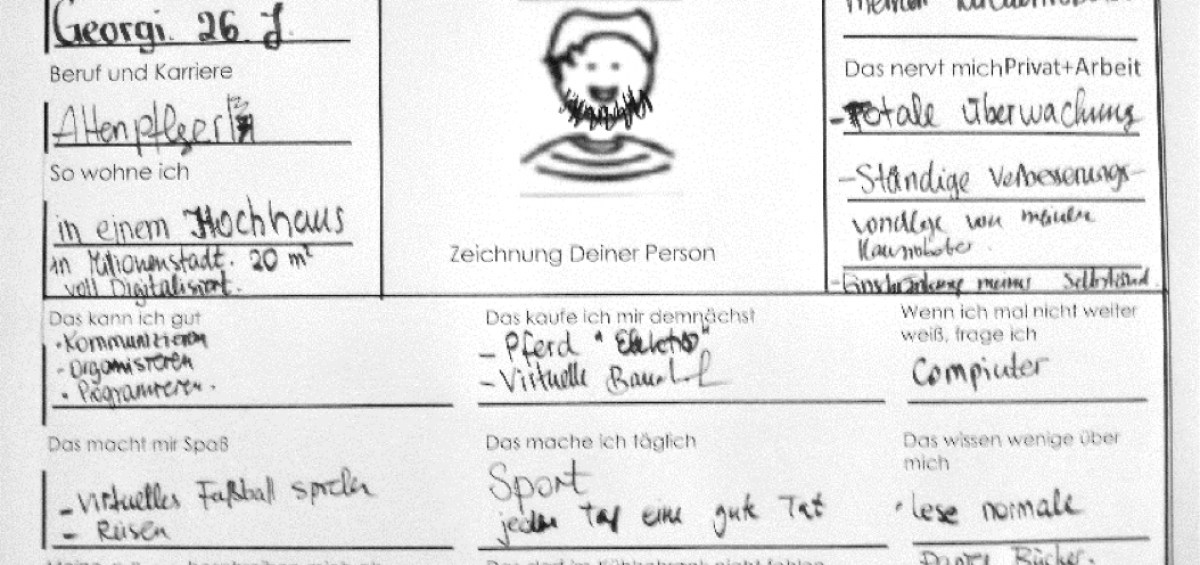 Georgi. 26 J.
Beruf und Karriere
Altenpfleger
So wohne ich
in einem Hochhaus
in Milionenstadt. 20 m²
voll Digitalisiert.
Zeichnung Deiner Person
Das nervt mich Privat+Arbeit
- Totale Überwachung
- Ständige Verbesserungs-
von meinem
- Einschränkung meiner Selbständ.
Das kann ich gut
• Kommunizieren
- Organisieren
• Programieren.
Das kaufe ich mir demnächst
- Pferd "Elektro"
- Virtuelle
Wenn ich mal nicht weiter
weiß, frage ich
Compiuter
Das macht mir Spaß
- Virtuelles Fußball spielen
- Reisen
Das mache ich täglich
Sport
jeden Tag eine gute Tat
Das wissen wenige über
mich
• lese normale
Papier Bücher.